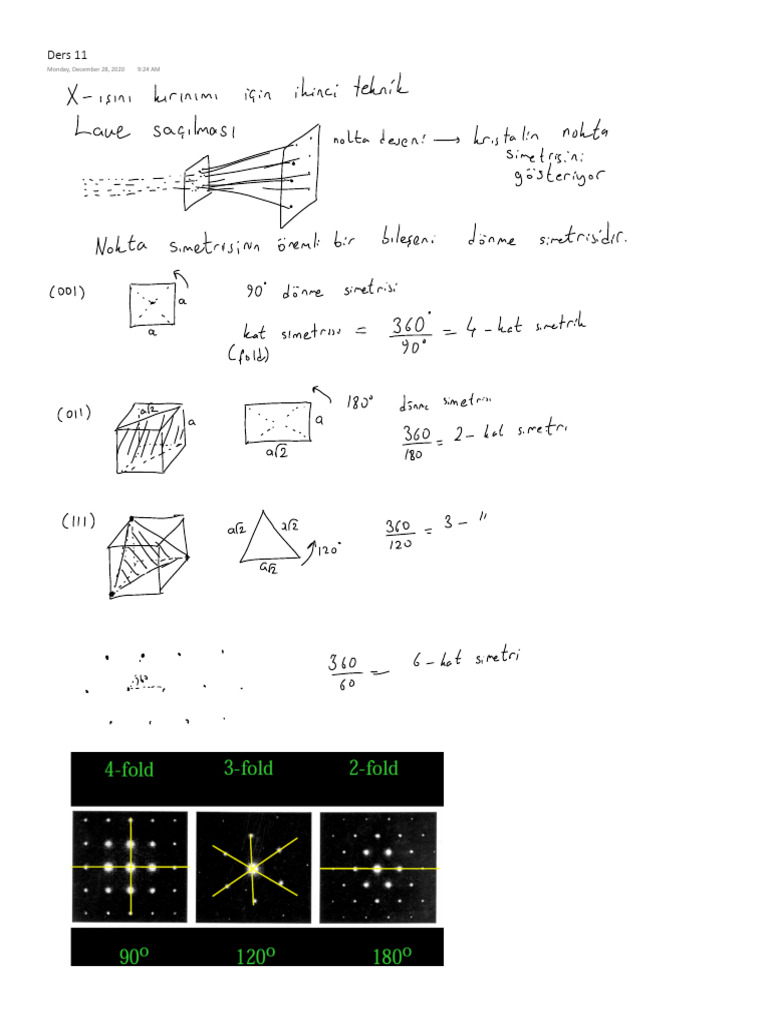 Ders 11
Monday, December 28, 2020 9:24 AM
X-ışını kırınımı için ikinci teknik
Laue saçılması
nokta deseni → kristalin nokta
simetrisini
gösteriyor
Nokta simetrisinin önemli bir bileşeni dönme simetrisidir.
(001)
a
a
90° dönme simetrisi
kat simetrisi = 360°/90° = 4-kat simetrik
(fold)
(011)
a√2
a
a
a√2
180° dönme simetrisi
360/180 = 2-kat simetri
(111)
a√2
a√2
a√2
120°
360/120 = 3- "
360/60 = 6-kat simetri
4-fold 3-fold 2-fold
90° 120° 180°